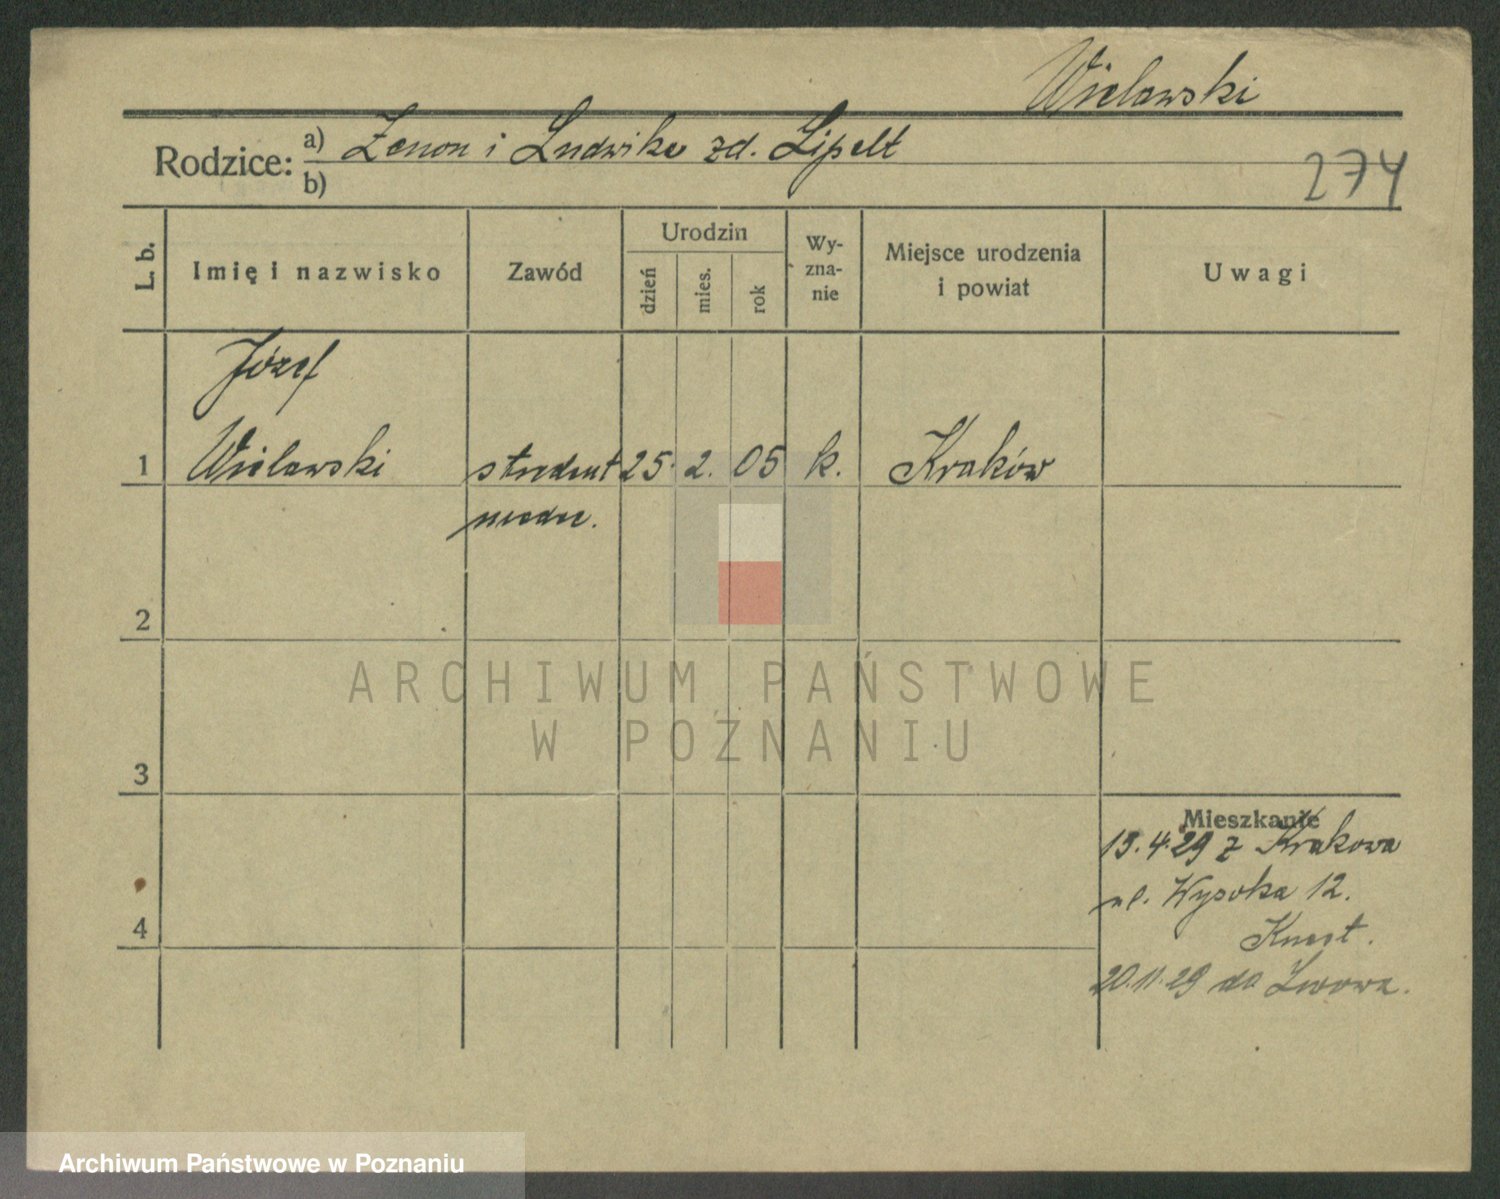 Wielowski
Rodzice: a) Zenon i Ludwika zd. Lipelt
b)
274
L. b.
Imię i nazwisko
Zawód
Urodzin
dzień
mies.
rok
Wy-
zna-
nie
Miejsce urodzenia
i powiat
Uwagi
Józef
1 Wielowski student 25. 2. 05 k. Kraków
2
3
4
ARCHIWUM PAŃSTWOWE
W POZNANIU
Mieszkanie
13.4.29 z Krakowa
ul. Wysoka 12.
20.11.29 do Lwowa.
Archiwum Państwowe w Poznaniu